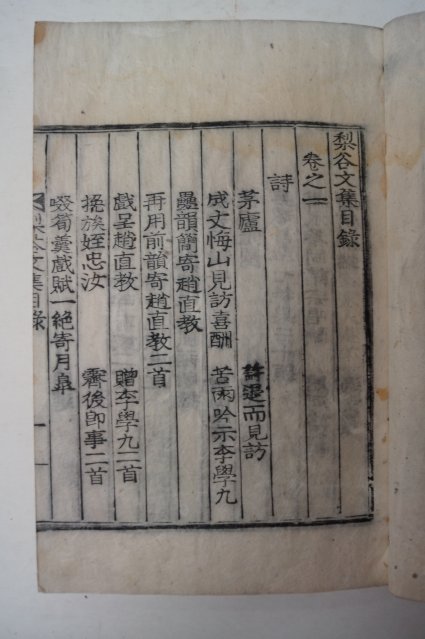 梨谷文集目錄
卷之一
詩
茅廬 許退而見訪
成文悔山見訪喜酬 苦雨吟示李學九
疊韻簡寄趙直教
再用前韻寄趙直教二首
戲呈趙直教 贈李學九二首
挽族姪忠汝 霽後即事二首
啜筍羹戲賦一絕寄月皐
梨谷文集目錄 一